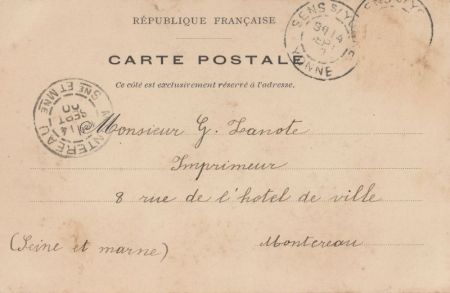 RÉPUBLIQUE FRANÇAISE
CARTE POSTALE
Ce côté est exclusivement réservé à l'adresse.
SENS S/YONNE
YONNE
MONTEREAU
SNE ET MNE
14
SEPT
00
Monsieur G. Zanote
Imprimeur
8 rue de l'hotel de ville
(Seine et marne) Montereau